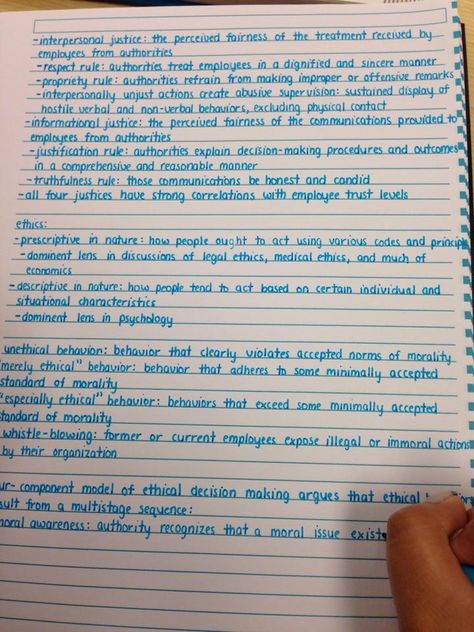 -interpersonal justice: the perceived fairness of the treatment received by
employees from authorities
-respect rule: authorities treat employees in a dignified and sincere manner
-propriety rule: authorities refrain from making improper or offensive remarks
-interpersonally unjust actions create abusive supervision: sustained display of
hostile verbal and non-verbal behaviors, excluding physical contact
-informational justice: the perceived fairness of the communications provided to
employees from authorities
-justification rule: authorities explain decision-making procedures and outcomes
in a comprehensive and reasonable manner
-truthfulness rule: those communications be honest and candid
-all four justices have strong correlations with employee trust levels
ethics:
-prescriptive in nature: how people ought to act using various codes and principl
-dominent lens in discussions of legal ethics, medical ethics, and much of
economics
-descriptive in nature: how people tend to act based on certain individual and
situational characteristics
-dominent lens in psychology
unethical behavior: behavior that clearly violates accepted norms of morality
"merely ethical" behavior: behavior that adheres to some minimally accepted
standard of morality
"especially ethical" behavior: behaviors that exceed some minimally accepted
standard of morality
whistle-blowing: former or current employees expose illegal or immoral actions
by their organization
ur-component model of ethical decision making argues that ethical
sult from a multistage sequence:
moral awareness: authority recognizes that a moral issue exists